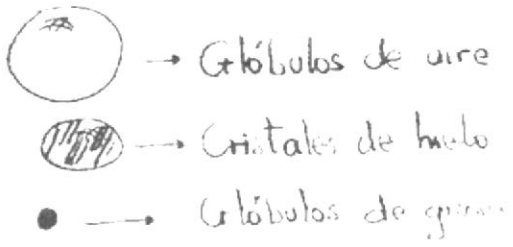 → Glóbulos de aire
→ Cristales de hielo
→ Glóbulos de